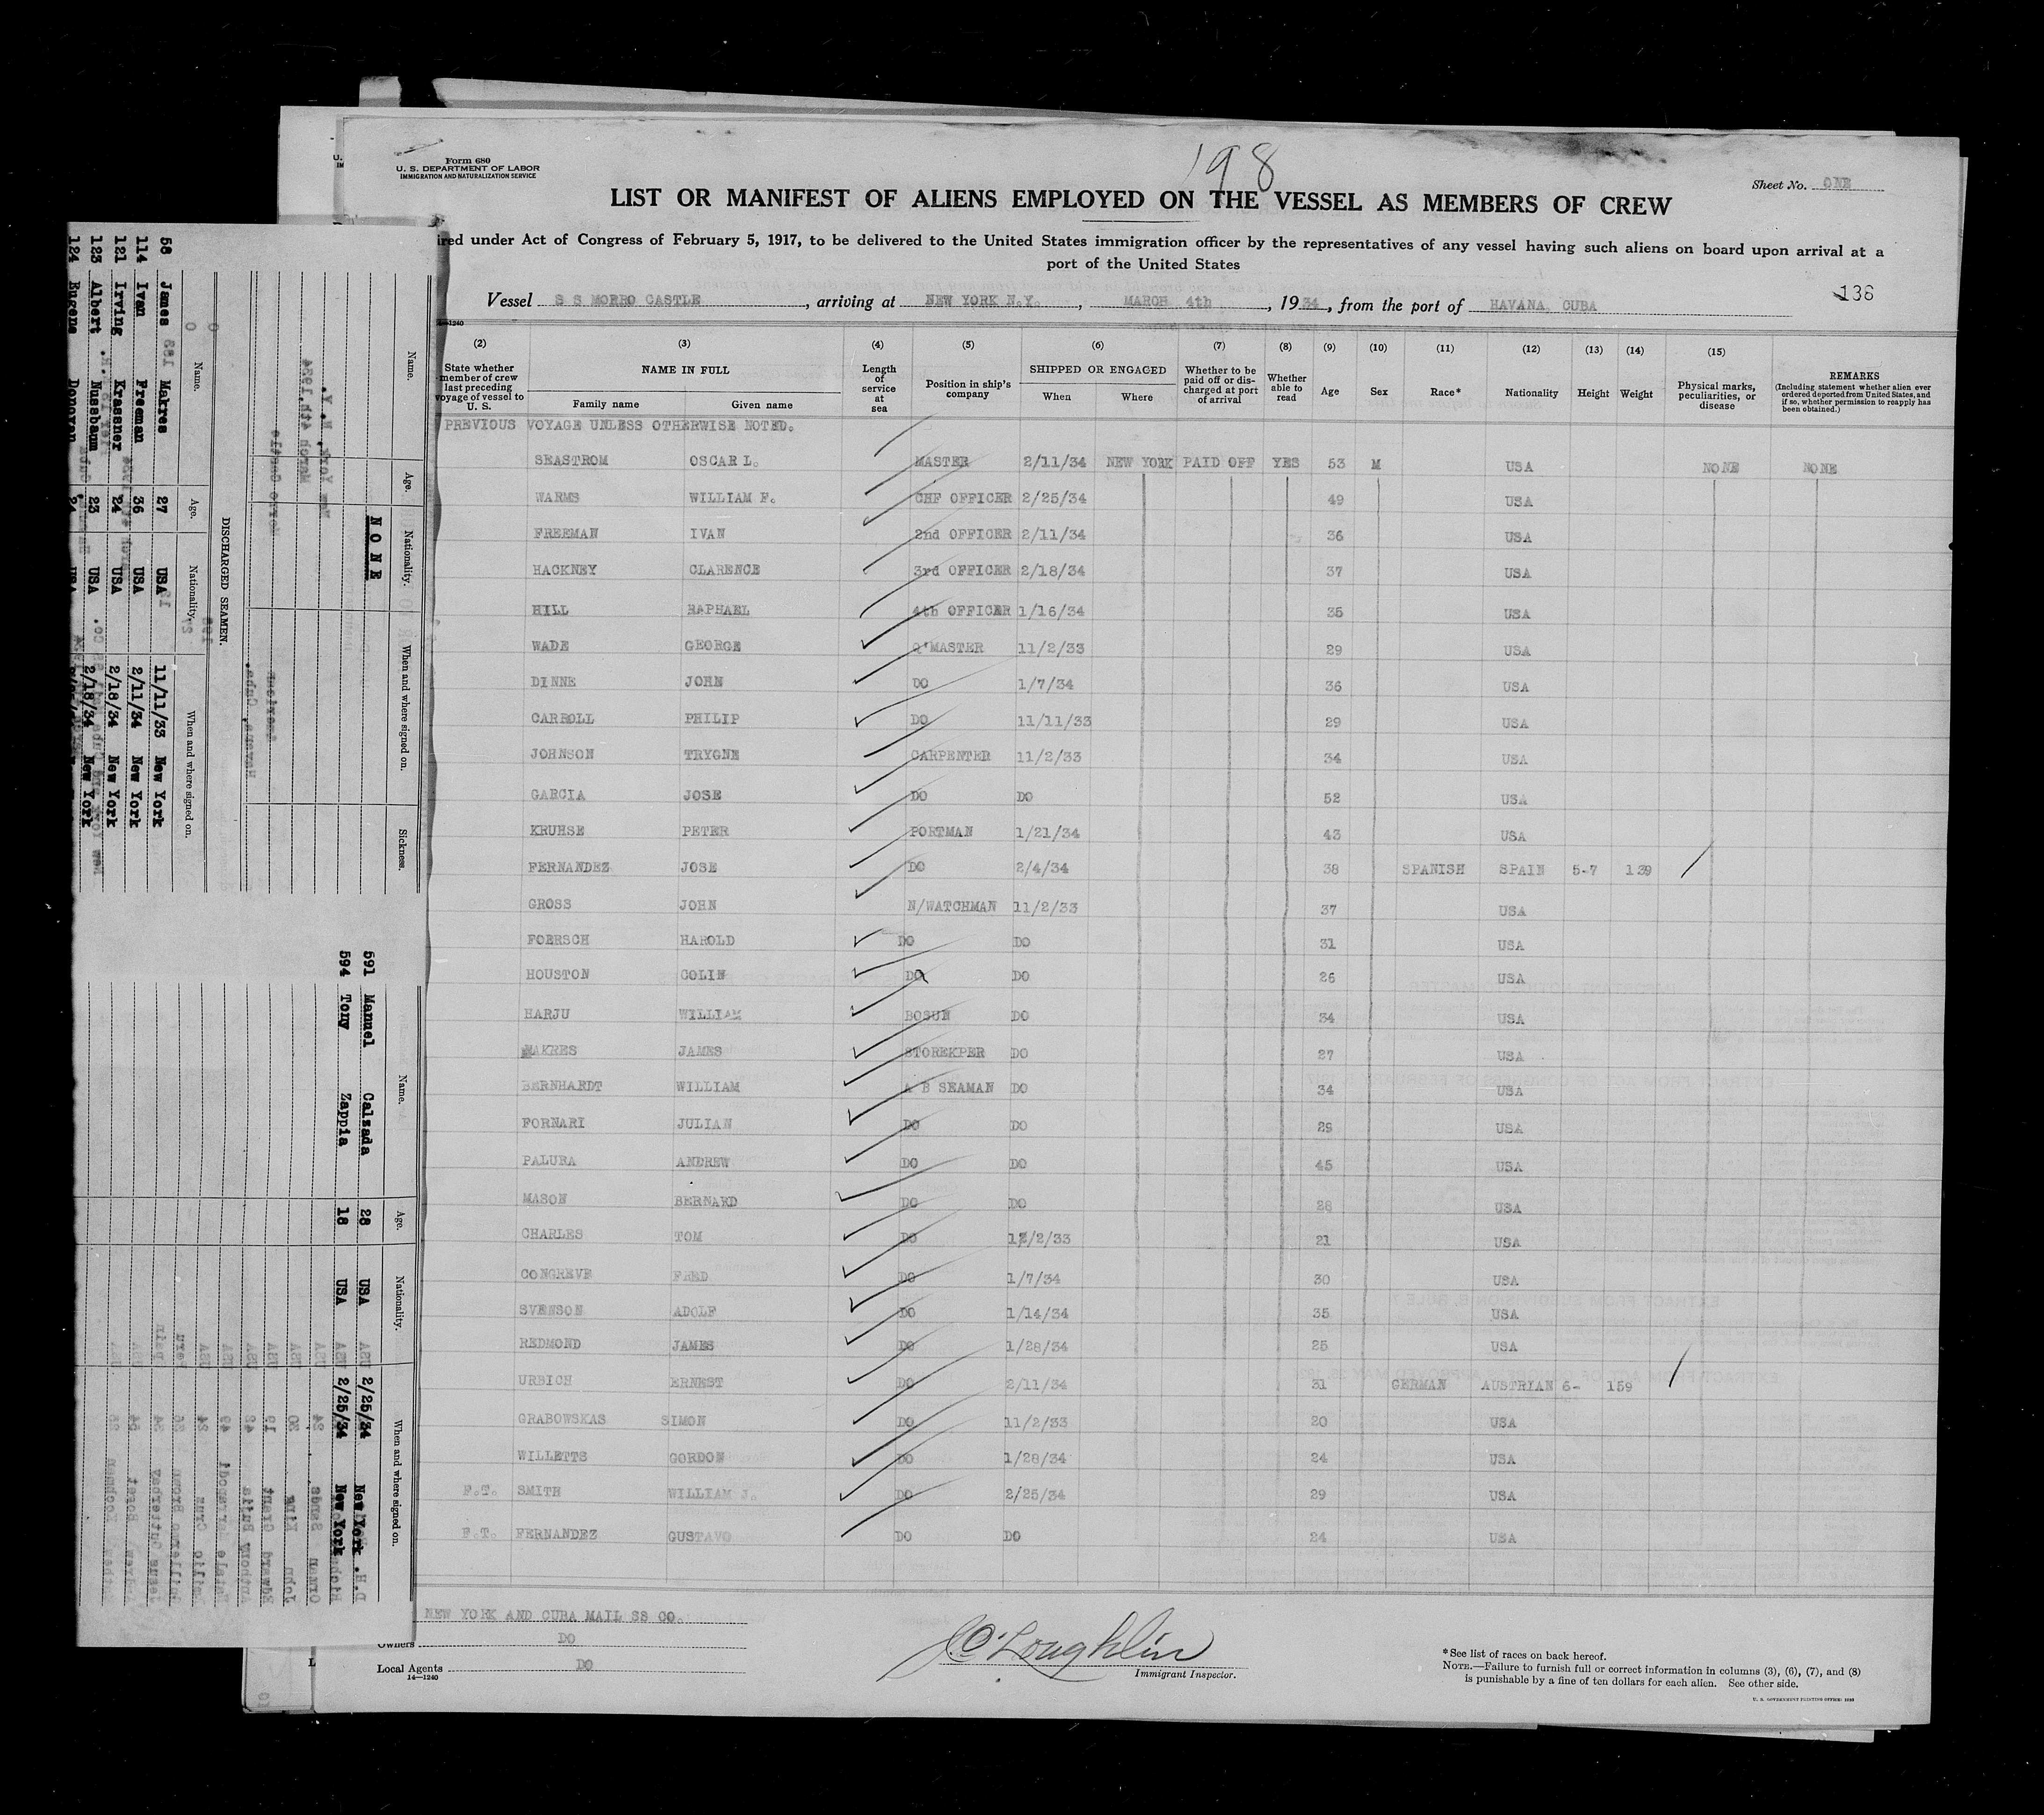 Form 680
U. S. DEPARTMENT OF LABOR
IMMIGRATION AND NATURALIZATION SERVICE
198
Sheet No. ONE
LIST OR MANIFEST OF ALIENS EMPLOYED ON THE VESSEL AS MEMBERS OF CREW
ired under Act of Congress of February 5, 1917, to be delivered to the United States immigration officer by the representatives of any vessel having such aliens on board upon arrival at a
port of the United States
136
Vessel S S MORRO CASTLE, arriving at NEW YORK N.Y., MARCH 4th, 1934, from the port of HAVANA, CUBA
14—1240
(2) (3) (4) (5) (6) (7) (8) (9) (10) (11) (12) (13) (14) (15)
State whether member of crew last preceding voyage of vessel to U. S.
NAME IN FULL
Family name Given name
Length of service at sea
Position in ship's company
SHIPPED OR ENGAGED
When Where
Whether to be paid off or discharged at port of arrival
Whether able to read
Age
Sex
Race*
Nationality
Height
Weight
Physical marks, peculiarities, or disease
REMARKS
(Including statement whether alien ever ordered deported from United States, and if so, whether permission to reapply has been obtained.)
PREVIOUS VOYAGE UNLESS OTHERWISE NOTED.
SEASTROM OSCAR L. MASTER 2/11/34 NEW YORK PAID OFF YES 53 M USA NONE NONE
WARMS WILLIAM F. CHF OFFICER 2/25/34 49 USA
FREEMAN IVAN 2nd OFFICER 2/11/34 36 USA
HACKNEY CLARENCE 3rd OFFICER 2/18/34 37 USA
HILL RAPHAEL 4th OFFICER 1/16/34 35 USA
WADE GEORGE Q'MASTER 11/2/33 29 USA
DINNE JOHN DO 1/7/34 36 USA
CARROLL PHILIP DO 11/11/33 29 USA
JOHNSON TRYGNE CARPENTER 11/2/33 34 USA
GARCIA JOSE DO DO 52 USA
KRUHSE PETER PORTMAN 1/21/34 43 USA
FERNANDEZ JOSE DO 2/4/34 38 SPANISH SPAIN 5-7 139
GROSS JOHN N/WATCHMAN 11/2/33 37 USA
FOERSCH HAROLD DO DO 31 USA
HOUSTON COLIN DO DO 26 USA
HARJU WILLIAM BOSUN DO 34 USA
MAKRES JAMES STOREKPER DO 27 USA
BERNHARDT WILLIAM A B SEAMAN DO 34 USA
FORNARI JULIAN DO DO 29 USA
PALUBA ANDREW DO DO 45 USA
MASON BERNARD DO DO 28 USA
CHARLES TOM DO 12/2/33 21 USA
CONGREVE FRED DO 1/7/34 30 USA
SVENSON ADOLF DO 1/14/34 35 USA
REDMOND JAMES DO 1/28/34 25 USA
URBICH ERNEST DO 2/11/34 31 GERMAN AUSTRIAN 6- 159
GRABOWSKAS SIMON DO 11/2/33 20 USA
WILLETTS GORDON DO 1/28/34 24 USA
F.T. SMITH WILLIAM J. DO 2/25/34 29 USA
F.T. FERNANDEZ GUSTAVO DO DO 24 USA
NEW YORK AND CUBA MAIL SS CO.
Owners DO
Local Agents DO
14—1240
Immigrant Inspector.
*See list of races on back hereof.
NOTE.—Failure to furnish full or correct information in columns (3), (6), (7), and (8)
is punishable by a fine of ten dollars for each alien. See other side.
Name. Age. Nationality. When and where signed on. Sickness.
NONE
DISCHARGED SEAMEN.
Name. Age. Nationality. When and where signed on.
58 James Makres 27 USA 11/11/33 New York
114 Ivan Freeman 36 USA 2/11/34 New York
121 Irving Krassner 24 USA 2/18/34 New York
123 Albert Nussbaum 23 USA 2/18/34 New York
124 Eugene Donovan 24 USA
Name. Age. Nationality. When and where signed on.
591 Manuel Calzada 28 USA 2/25/34 New York
594 Tony Zappia 18 USA 2/25/34 New York